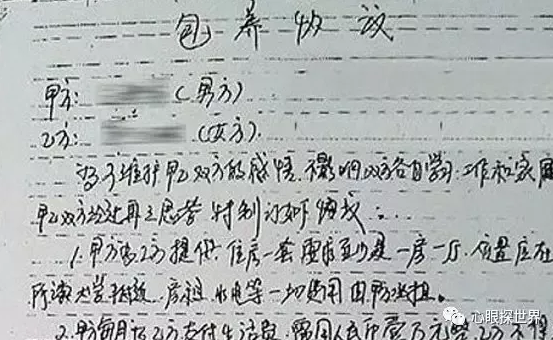 包养协议
甲方: (男方)
乙方: (女方).
为了维护甲乙双方的感情,不影响双方各自学习、工作和家庭
甲乙双方经过再三思考 特制订如下协议:
1. 甲方为乙方提供住房一套 面积至少是一房一厅、位置应在
所读大学附近、房租、水电等一切费用由甲方承担。
2. 甲方每月给乙方支付生活费 人民币壹万元整,乙方不得
心眼探世界